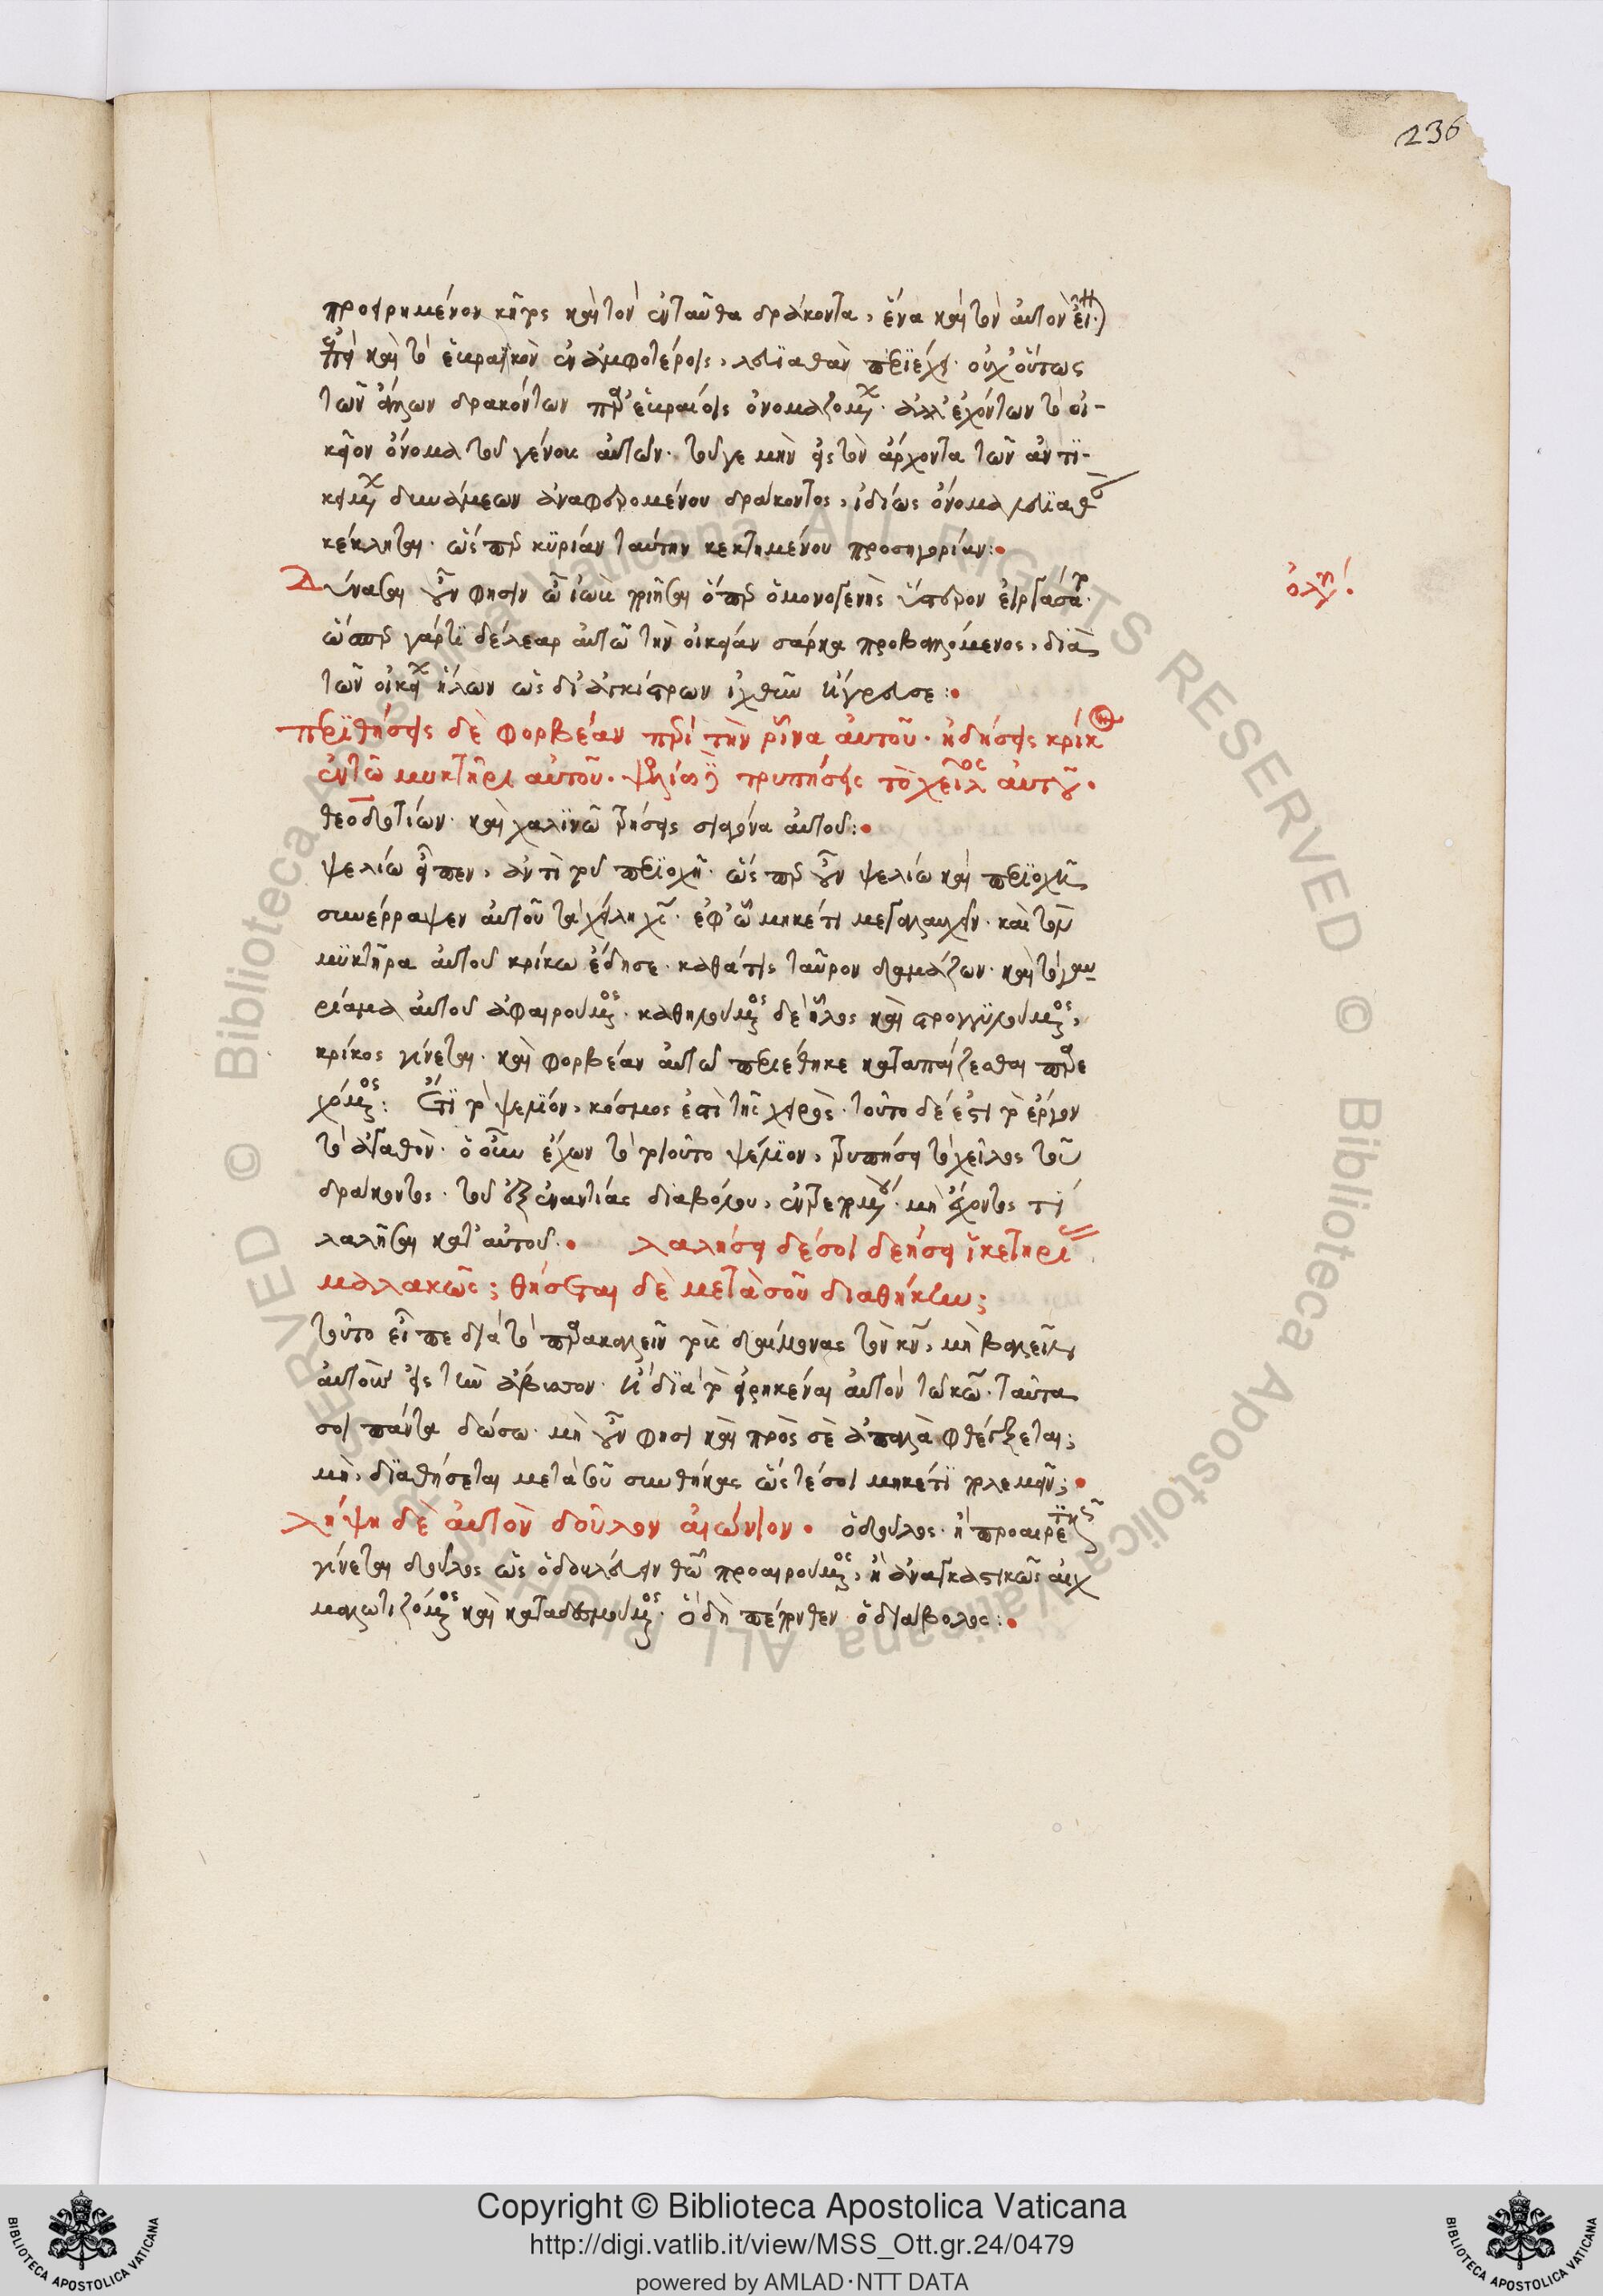 236
προειρημένον κῆτος καὶ τὸν ἐνταῦθα δράκοντα, ἕνα καὶ τὸν αὐτὸν
καὶ τὸ ἑβραϊκὸν ἐν ἀμφοτέροις, λευϊαθὰν περιέχει· οὐχ οὕτως
τῶν ἄλλων δρακόντων παρ' ἑβραίοις ὀνομαζομένων· ἀλλ' ἐχόντων τὸ οἰ-
κεῖον ὄνομα τοῦ γένους αὐτῶν· τοῦ γε μὴν εἰς τὸν ἄρχοντα τῶν ἀντι-
κειμένων δυνάμεων ἀναφερομένου δράκοντος, ἰδίως ὄνομα λευϊαθὰν
κέκληται· ὥσπερ κυρίαν ταύτην κεκτημένου προσηγορίαν:
Δύναται οὖν φησιν ὦ ἰὼβ ποιῆσαι ὅπερ ὁ μονογενὴς ὕστερον εἰργάσατο·
ὥσπερ γάρ τι δέλεαρ αὐτῶ τὴν οἰκείαν σάρκα προβαλλόμενος, διὰ
τῶν οἰκείων ἥλων ὡς δι' ἀγκίστρων ἰχθῦν ἤγρευσε:
ὀλυ
περιθήσεις δὲ φορβέαν περὶ τὴν ρῖνα αὐτοῦ· ἢ δήσεις κρίκον
ἐν τῶ μυκτῆρι αὐτοῦ· ψελίω δὲ τρυπήσεις τὸ χεῖλος αὐτοῦ·
θεοδοτίων· καὶ χαλινῶ τρήσεις σιαγόνα αὐτοῦ:
ψελίω εἶπεν, ἀντὶ τοῦ περιοχῆ· ὥσπερ οὖν ψελίω καὶ περιοχῆ
συνέρραψεν αὐτοῦ τὰ χείλη χς· ἐφ' ὧ μηκέτι μεγαλαυχεῖν· καὶ τὸν
μυκτῆρα αὐτοῦ κρίκω ἔδησε· καθά τις ταῦρον δαμάζων· καὶ τὸ γαυ
ρίαμα αὐτοῦ ἀφαιρούμενος· καθηλούμενος δὲ ἧλος καὶ στρογγυλούμενος,
κρίκος γίνεται· καὶ φορβέαν αὐτῶ περιέθηκε καταπαίζεσθαι παρε
χόμενος: Ἔτι τὸ ψέλιον, κόσμος ἐπὶ τῆς χειρός· τοῦτο δέ ἐστι τὸ ἔργον
τὸ ἀγαθόν· ὁ οὖν ἔχων τὸ τοιοῦτο ψέλιον, τρυπήσει τὸ χεῖλος τοῦ
δράκοντος· τοῦ ἐξ ἐναντίας διαβόλου, ἐντρεπομένου· μὴ ἔχοντος τί
λαλῆσαι κατ' αὐτοῦ. λαλήσει δέ σοι δεήσει ἱκετηρία
μαλακῶς; θήσεται δὲ μετὰ σοῦ διαθήκην;
τοῦτο εἶπε διὰ τὸ παρακαλεῖν τοὺς δαίμονας τὸν κν, μὴ βαλεῖν
αὐτοὺς εἰς τὴν ἄβυσσον· ἢ διὰ τὸ εἰρηκέναι αὐτὸν τῶ κω· ταῦτα
σοι πάντα δώσω· μὴ οὖν φησι καὶ πρὸς σὲ ἁπαλὰ φθέγξεται;
μὴ, διαθήσεται μετὰ σοῦ συνθήκας ὥστέ σοι μηκέτι πολεμεῖν;
λήψη δὲ αὐτὸν δοῦλον αἰώνιον· ὁ δοῦλος· ἢ προαιρετικῶς
γίνεται δοῦλος ὡς ὁ δουλεύειν θῶ προαιρούμενος, ἢ ἀναγκαστικῶς αἰχ
μαλωτιζόμενος καὶ καταδεσμούμενος· ὃ δὴ πέπονθεν ὁ διάβολος:
Copyright © Biblioteca Apostolica Vaticana
http://digi.vatlib.it/view/MSS_Ott.gr.24/0479
powered by AMLAD·NTT DATA